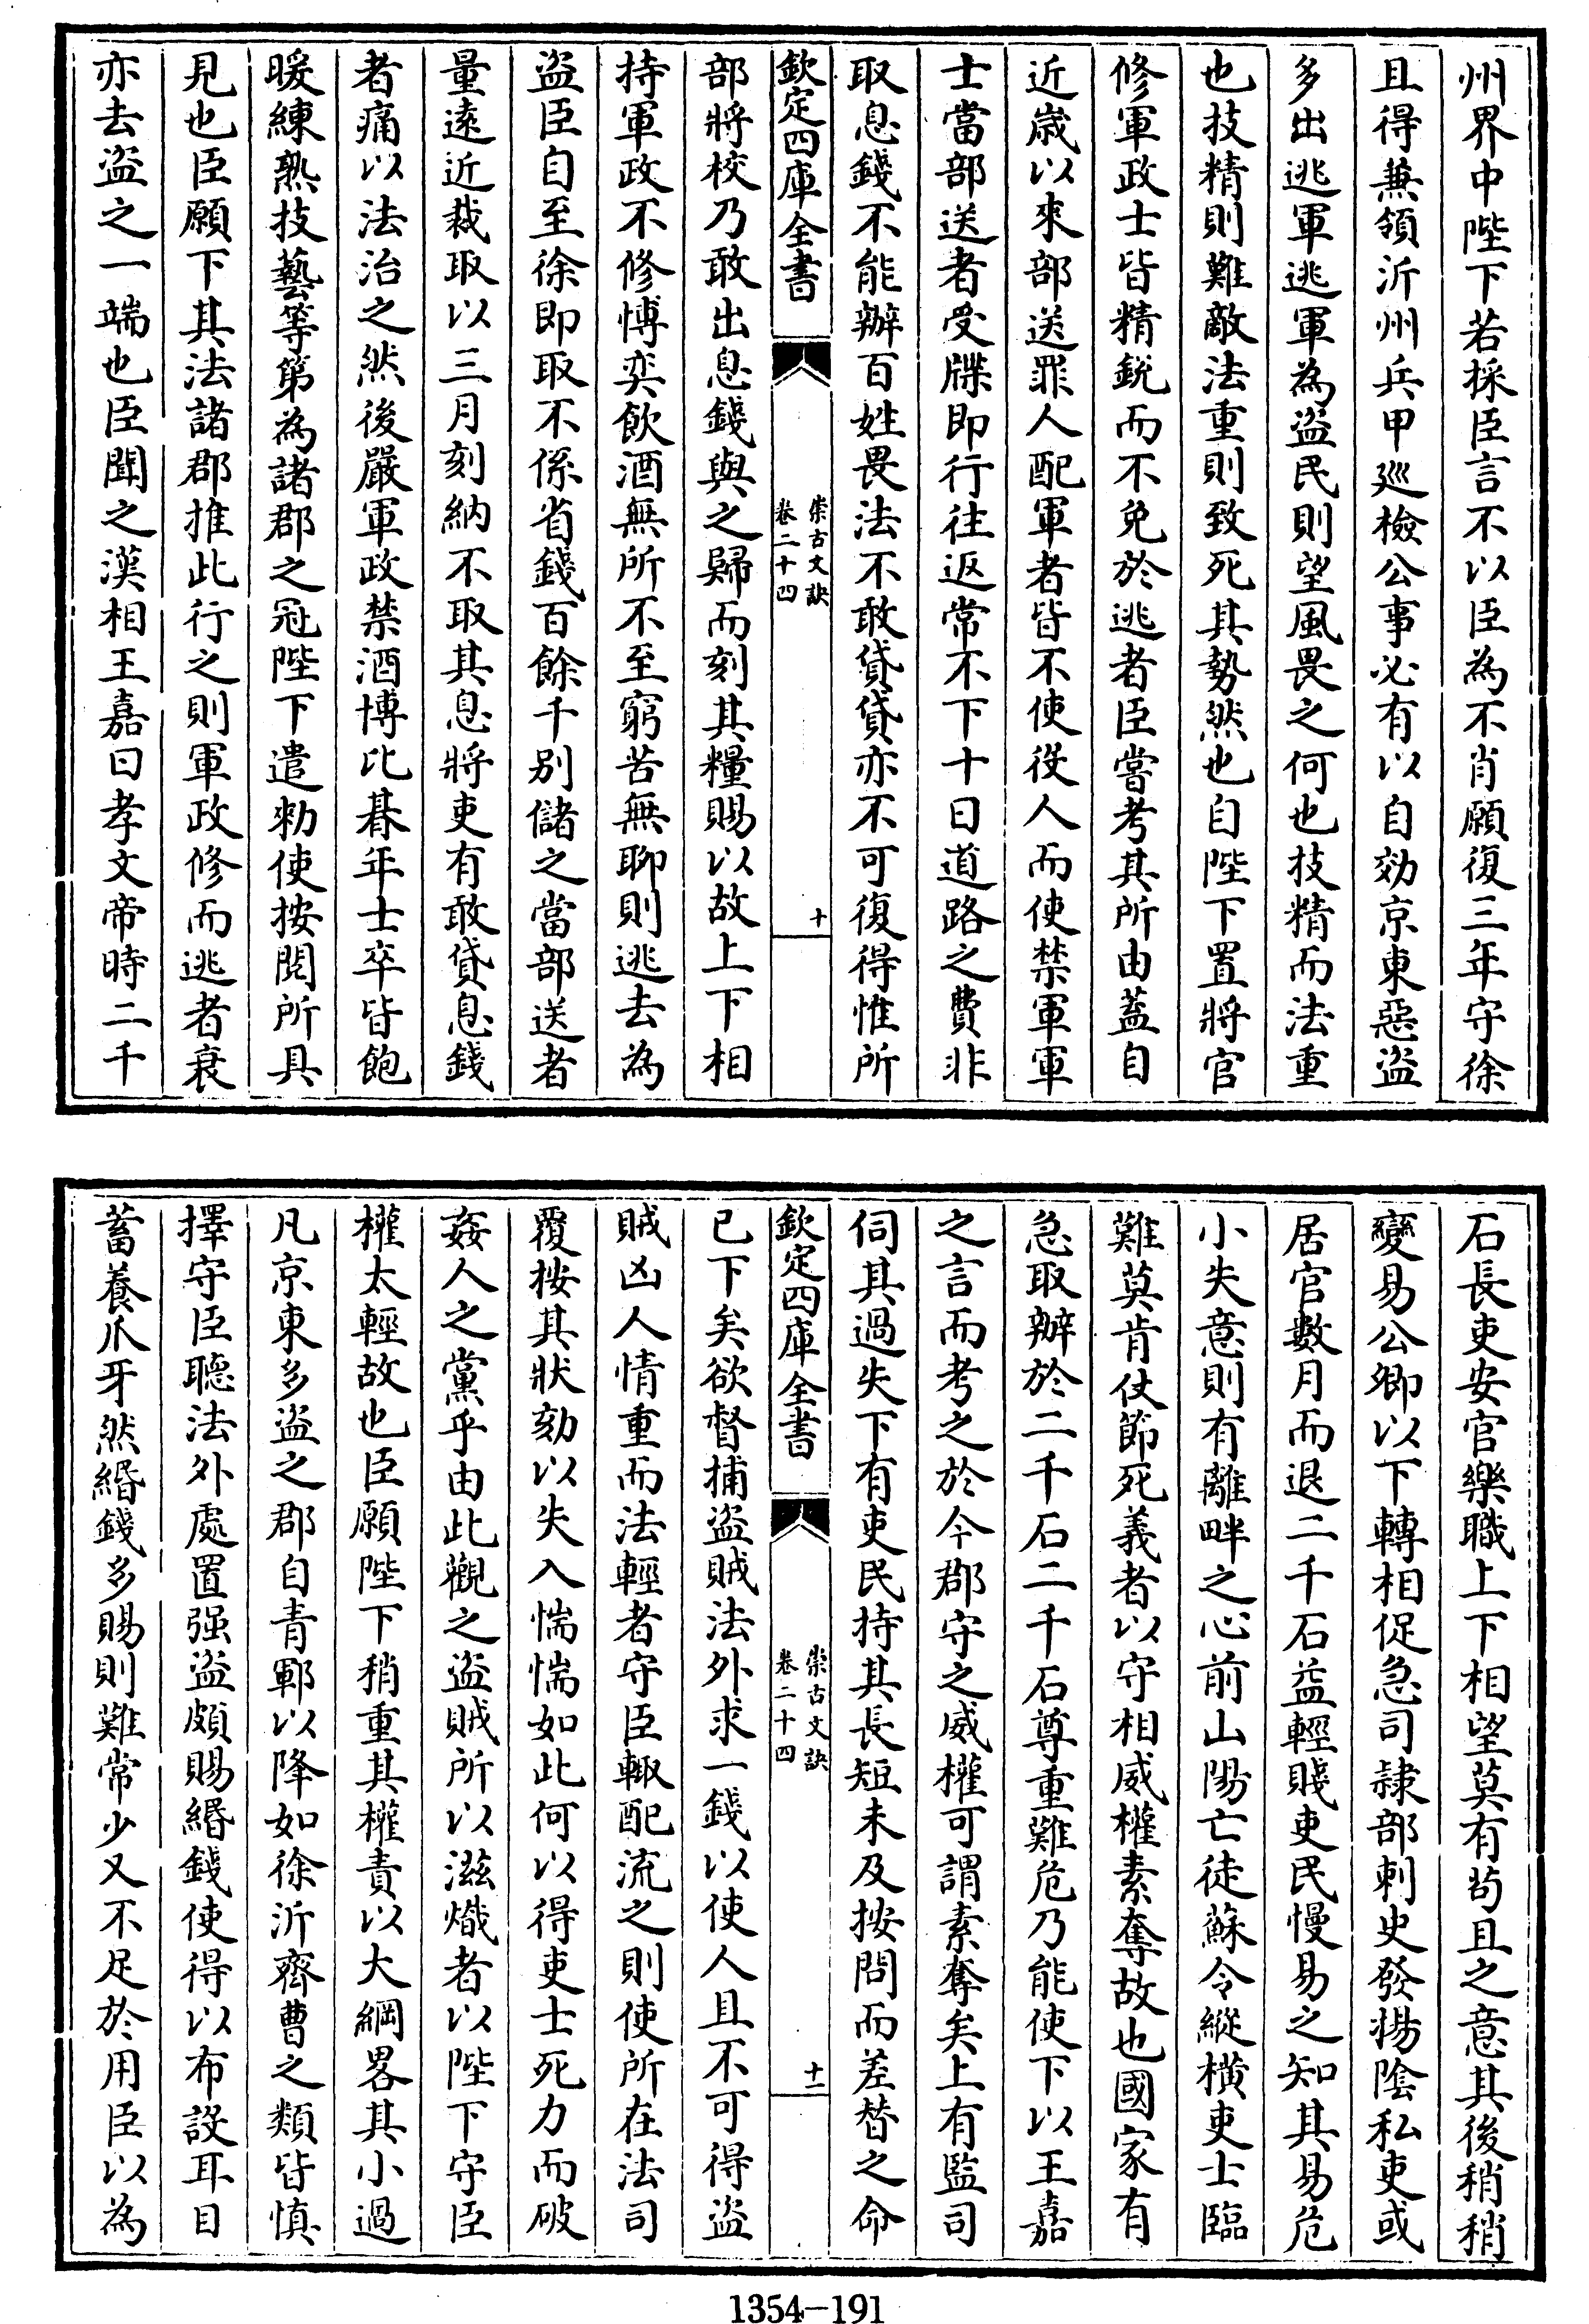 州界中陛下若採臣言不以臣為不肖願復三年守徐
且得兼領沂州兵甲巡檢公事必有以自効京東惡盜
多出逃軍逃軍為盜民則望風畏之何也技精而法重
也技精則難敵法重則致死其勢然也自陛下置將官
修軍政士皆精銳而不免於逃者臣嘗考其所由蓋自
近歲以來部送罪人配軍者皆不使役人而使禁軍軍
士當部送者受牒即行往返常不下十日道路之費非
取息錢不能辦百姓畏法不敢貸貸亦不可復得惟所
欽定四庫全書
崇古文訣
卷二十四
十
部將校乃敢出息錢與之歸而刻其糧賜以故上下相
持軍政不修博奕飲酒無所不至窮苦無聊則逃去為
盜臣自至徐即取不係省錢百餘千別儲之當部送者
量遠近裁取以三月刻納不取其息將吏有敢貸息錢
者痛以法治之然後嚴軍政禁酒博比朞年士卒皆飽
暖練熟技藝等第為諸郡之冠陛下遣勑使按閱所具
見也臣願下其法諸郡推此行之則軍政修而逃者衰
亦去盜之一端也臣聞之漢相王嘉曰孝文帝時二千
石長吏安官樂職上下相望莫有茍且之意其後稍稍
變易公卿以下轉相促急司隷部刺史發揚陰私吏或
居官數月而退二千石益輕賤吏民慢易之知其易危
小失意則有離畔之心前山陽亡徒蘇令縱橫吏士臨
難莫肯仗節死義者以守相威權素奪故也國家有
急取辦於二千石二千石尊重難危乃能使下以王嘉
之言而考之於今郡守之威權可謂素奪矣上有監司
伺其過失下有吏民持其長短未及按問而差替之命
欽定四庫全書
崇古文訣
卷二十四
十一
已下矣欲督捕盜賊法外求一錢以使人且不可得盜
賊凶人情重而法輕者守臣輙配流之則使所在法司
覆按其狀劾以失入惴惴如此何以得吏士死力而破
姦人之黨乎由此觀之盜賊所以滋熾者以陛下守臣
權太輕故也臣願陛下稍重其權責以大綱畧其小過
凡京東多盜之郡自青鄆以降如徐沂齊曹之類皆慎
擇守臣聽法外處置强盜頗賜緡錢使得以布設耳目
蓄養爪牙然緡錢多賜則難常少又不足於用臣以為
1354-191